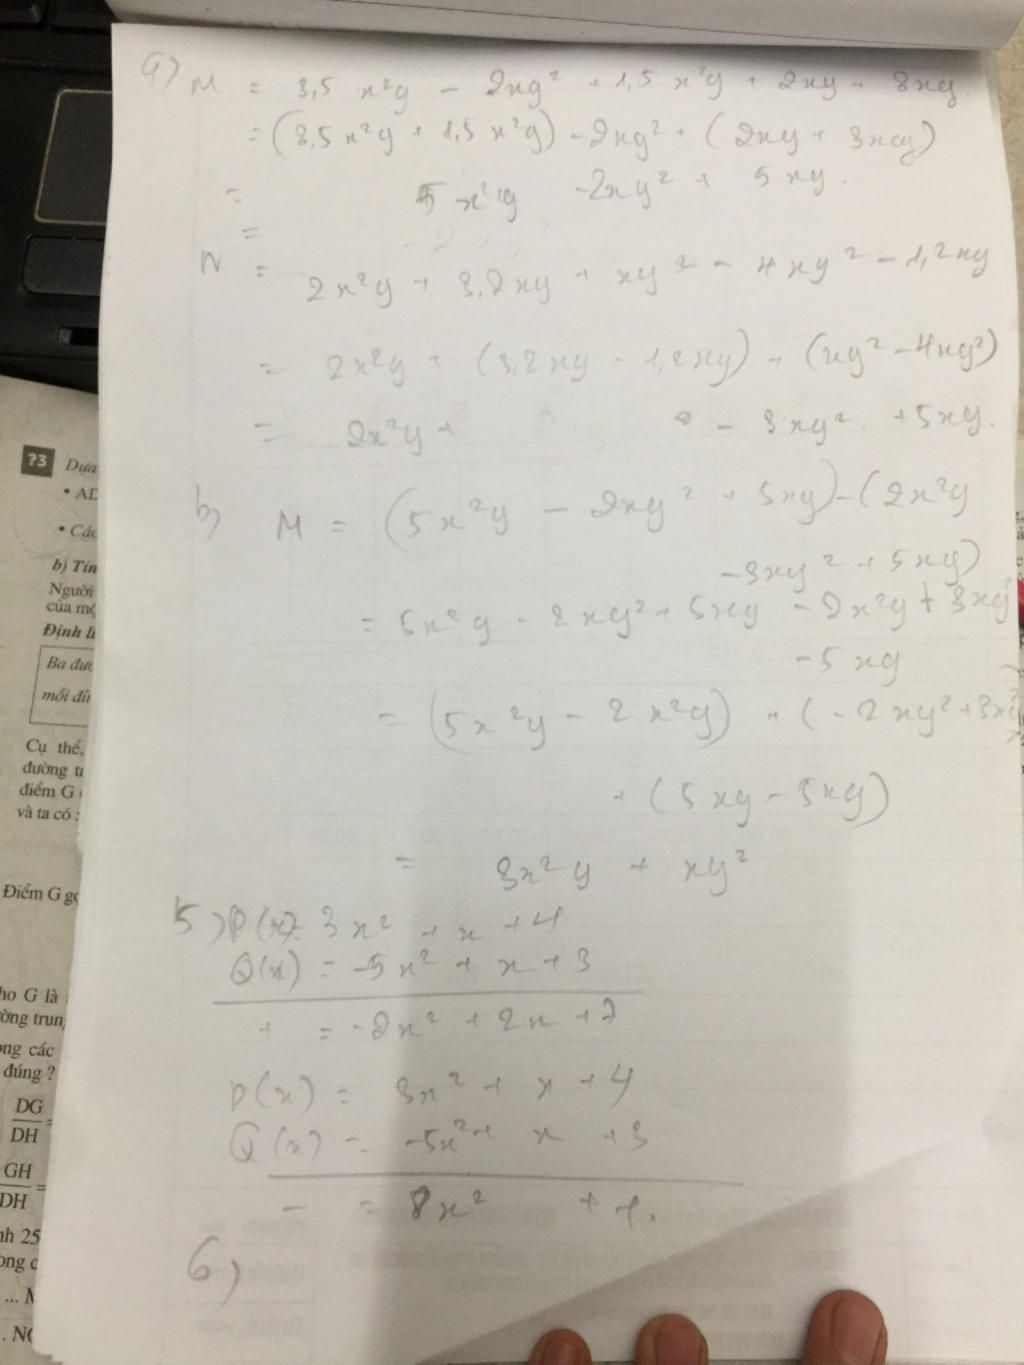 a) M = 3,5 x²y - 2xy² + 1,5 x²y + 2xy + 3xy.
= (3,5 x²y + 1,5 x²y) - 2xy² + (2xy + 3xy)
= 5 x²y - 2xy² + 5 xy.
=
N = 2x²y + 3,2xy + xy² - 4xy² - 1,2xy
= 2x²y + (3,2xy - 1,2xy) + (xy² - 4xy²)
= 2x²y + - 3xy² + 5xy.
b) M = (5x²y - 2xy² + 5xy) - (2x²y
- 3xy² + 5xy)
= 5x²y - 2xy² + 5xy - 2x²y + 3xy²
- 5 xy
= (5x²y - 2x²y) + (-2xy² + 3xy²)
+ (5xy - 5xy)
= 3x²y + xy²
5) P(x) = 3x² + x + 4
Q(x) = -5x² + x + 3
+ = -2x² + 2x + 7
P(x) = 3x² + x + 4
Q(x) = -5x² + x + 3
- = 8x² + 1.
6)
?3 Dựa
• Các
b) Tín
Người
của mộ
Định lí
Ba đườ
mỗi đỉn
Cụ thể,
đường tr
điểm G
và ta có :
Điểm G gọ
ho G là
ờng trun
ong các
đúng ?
DG
DH =
GH
DH =
nh 25
ong c
... M
. NG